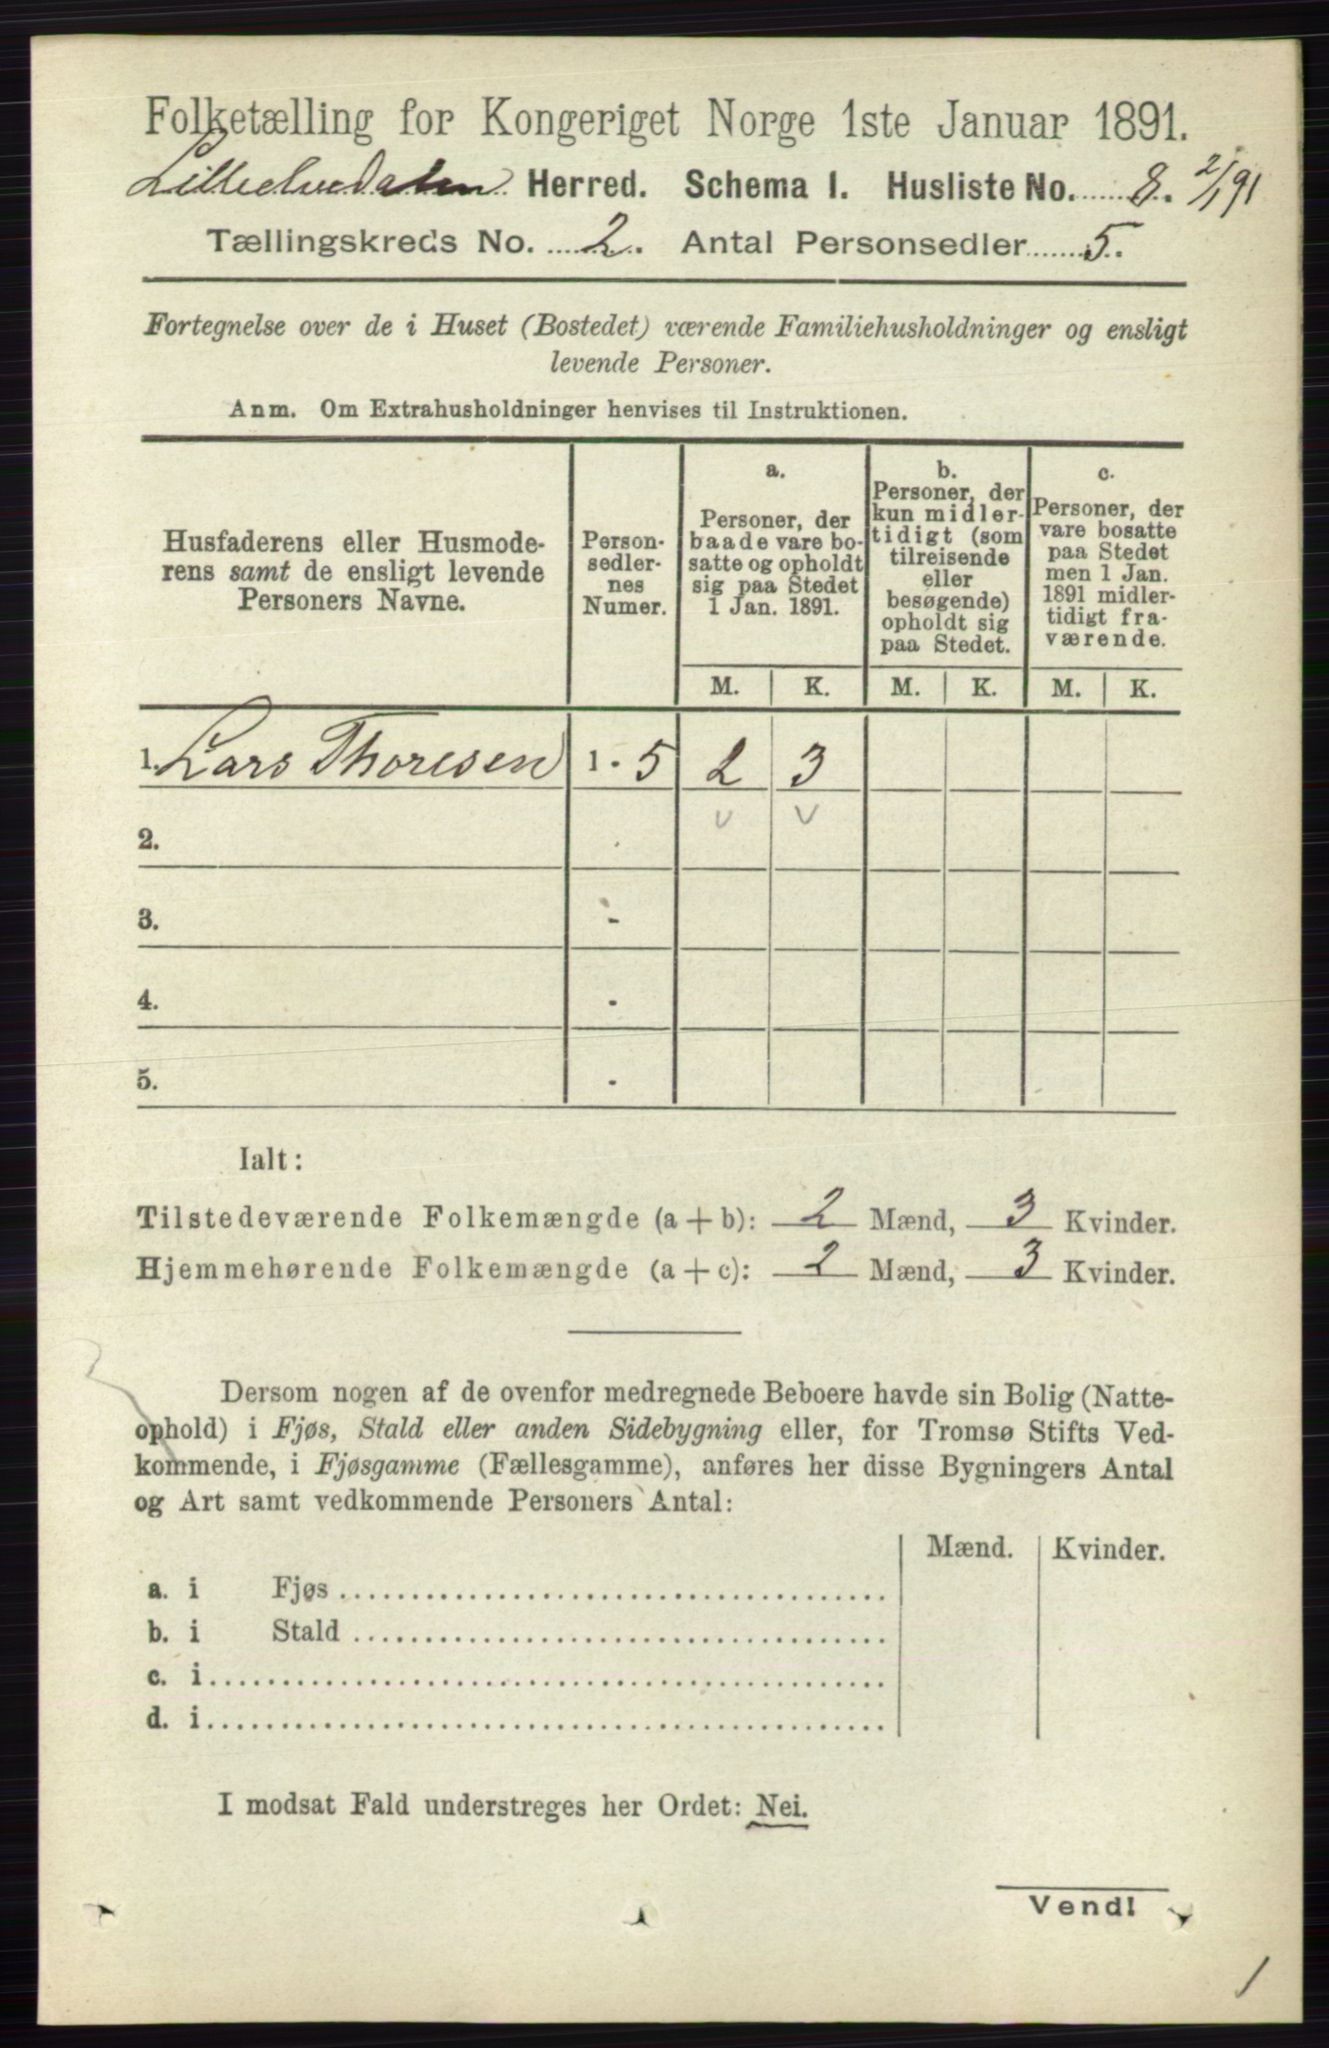 Folketælling for Kongeriget Norge 1ste Januar 1891.
Lilleelvedalen Herred. Schema 1. Husliste No. 8. 2/1 91
Tællingskreds No. 2. Antal Personsedler 5.
Fortegnelse over de i Huset (Bostedet) værende Familiehusholdninger og ensligt
levende Personer.
Anm. Om Extrahusholdninger henvises til Instruktionen.
Husfaderens eller Husmode-
rens samt de ensligt levende
Personers Navne.
Person-
sedler-
nes
Numer.
a.
Personer, der
baade vare bo-
satte og opholdt
sig paa Stedet
1 Jan. 1891.
b.
Personer, der
kun midler-
tidigt (som
tilreisende
eller
besøgende)
opholdt sig
paa Stedet.
c.
Personer, der
vare bosatte
paa Stedet
men 1 Jan.
1891 midler-
tidigt fra-
værende.
M. K. M. K. M. K.
1. Lars Thoresen 1 - 5 2 3
v v
2.
3. -
4. -
5. -
Ialt:
Tilstedeværende Folkemængde (a + b): 2 Mænd, 3 Kvinder.
Hjemmehørende Folkemængde (a + c): 2 Mænd, 3 Kvinder.
Dersom nogen af de ovenfor medregnede Beboere havde sin Bolig (Natte-
ophold) i Fjøs, Stald eller anden Sidebygning eller, for Tromsø Stifts Ved-
kommende, i Fjøsgamme (Fællesgamme), anføres her disse Bygningers Antal
og Art samt vedkommende Personers Antal:
Mænd. Kvinder.
a. i Fjøs
b. i Stald
c. i
d. i
I modsat Fald understreges her Ordet: Nei.
Vend!
1